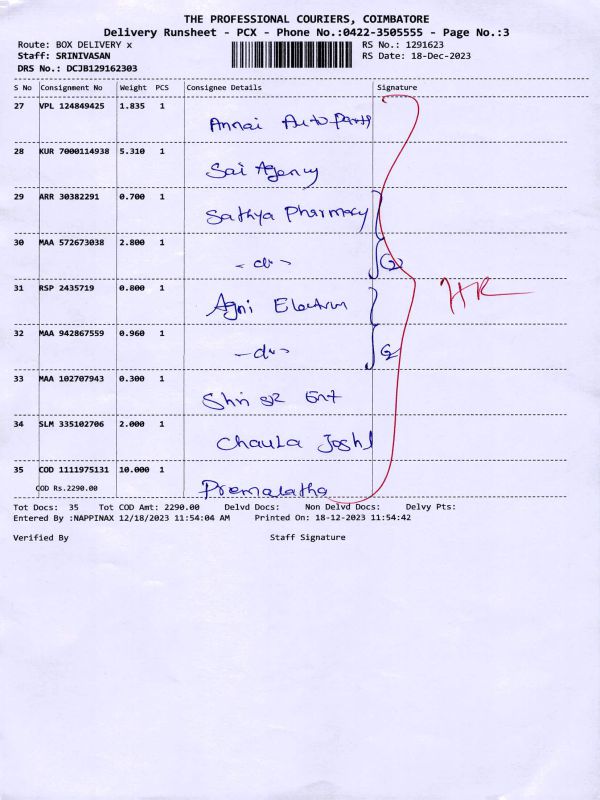 THE PROFESSIONAL COURIERS, COIMBATORE
Delivery Runsheet - PCX - Phone No.:0422-3505555 - Page No.:3
Route: BOX DELIVERY x RS No.: 1291623
Staff: SRINIVASAN RS Date: 18-Dec-2023
DRS No.: DCJB129162303
S No Consignment No Weight PCS Consignee Details Signature
27 VPL 124849425 1.835 1 Annai Auto parts
28 KUR 7000114938 5.310 1 Sai Agency
29 ARR 30382291 0.700 1 Sathya Pharmacy
30 MAA 572673038 2.800 1 - do -
31 RSP 2435719 0.800 1 Agni Electron
32 MAA 942867559 0.960 1 - do -
33 MAA 102707943 0.300 1 Shri SR Ent
34 SLM 335102706 2.000 1 Chaula Joshi
35 COD 1111975131 10.000 1 Premalatha
COD Rs.2290.00
Tot Docs: 35 Tot COD Amt: 2290.00 Delvd Docs: Non Delvd Docs: Delvy Pts:
Entered By :NAPPINAX 12/18/2023 11:54:04 AM Printed On: 18-12-2023 11:54:42
Verified By Staff Signature